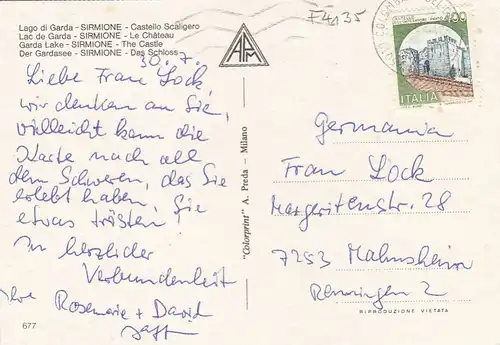 Lago di Garda - SIRMIONE - Castello Scaligero
Lac de Garda - SIRMIONE - Le Château
Garda Lake - SIRMIONE - The Castle
Der Gardasee - SIRMIONE - Das Schloss
30.7.
Liebe Frau Lock,
wir denken an Sie,
vielleicht kann die
Karte nach all
dem Schweren, das Sie
erlebt haben, Sie
etwas trösten!
In herzlicher
Verbundenheit
Ihre Rosemarie + David
677
APM
"Colorprint" A. Preda - Milano
F4135
400
ITALIA
Germania
Frau Lock
Margeritenstr. 28
7253 Malmsheim
Renningen 2
RIPRODUZIONE VIETATA